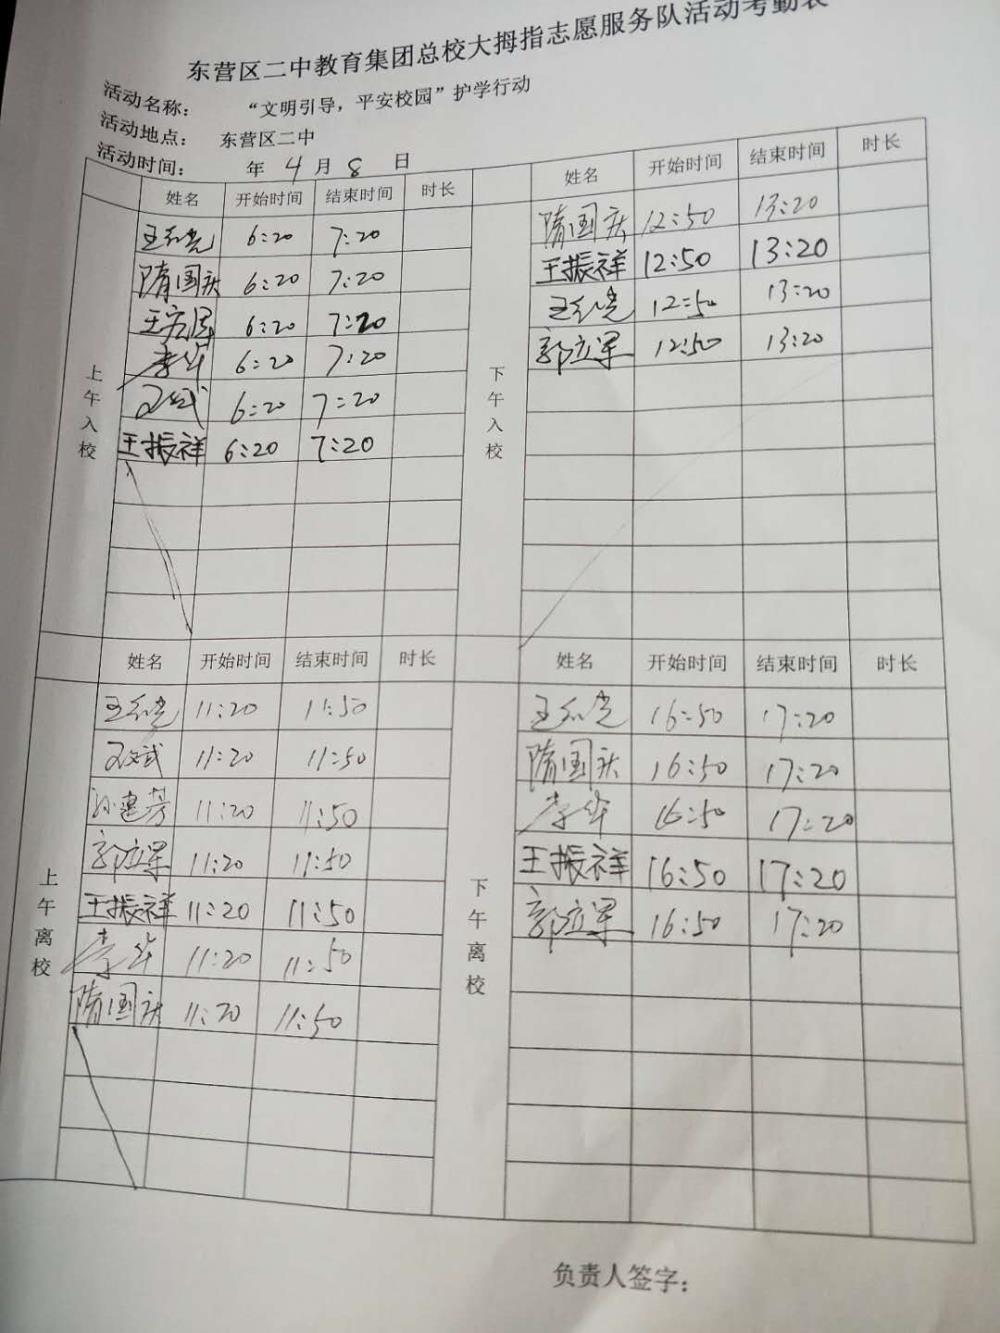 东营区二中教育集团总校大拇指志愿服务队活动考勤表
活动名称： “文明引导，平安校园”护学行动
活动地点： 东营区二中
活动时间： 年 4 月 8 日
上午入校
姓名 开始时间 结束时间 时长
6:20 7:20
隋国庆 6:20 7:20
6:20 7:20
李华 6:20 7:20
6:20 7:20
王振祥 6:20 7:20
下午入校
姓名 开始时间 结束时间 时长
隋国庆 12:50 13:20
王振祥 12:50 13:20
12:50 13:20
郭立军 12:50 13:20
上午离校
姓名 开始时间 结束时间 时长
11:20 11:50
11:20 11:50
孙建芳 11:20 11:50
郭立军 11:20 11:50
王振祥 11:20 11:50
李华 11:20 11:50
隋国庆 11:20 11:50
下午离校
姓名 开始时间 结束时间 时长
16:50 17:20
隋国庆 16:50 17:20
李华 16:50 17:20
王振祥 16:50 17:20
郭立军 16:50 17:20
负责人签字：